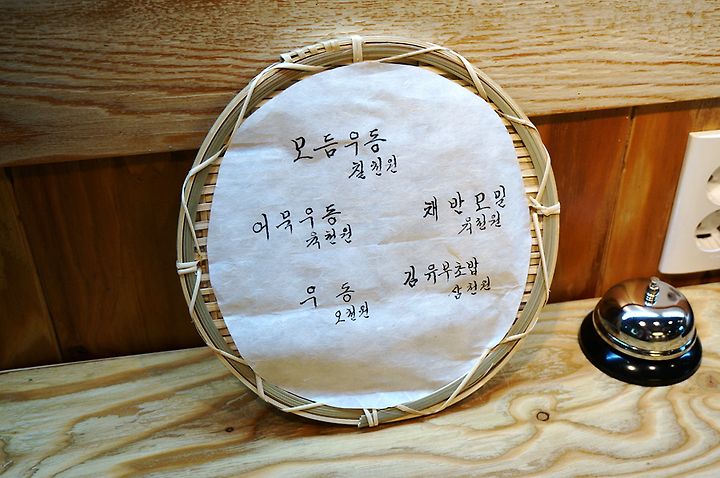 모듬우동
칠천원
어묵우동
육천원
채반모밀
육천원
우동
오천원
김유부초밥
삼천원